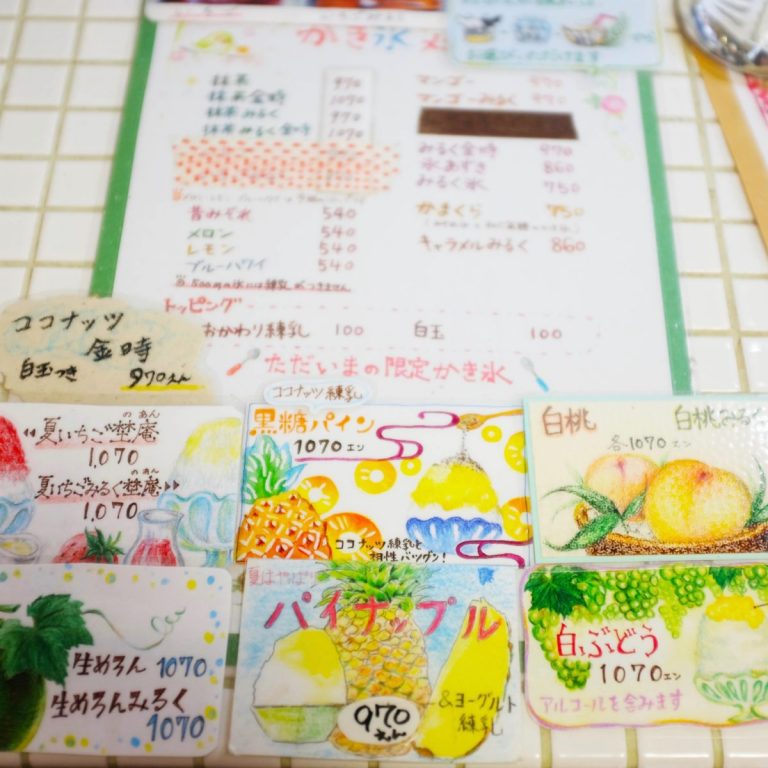 かき氷メ
抹茶 970
抹茶金時 1070
抹茶みるく 970
抹茶みるく金時 1070
昔みぞれ 540
メロン 540
レモン 540
ブルーハワイ 540
マンゴー 970
マンゴーみるく 970
みるく金時 970
氷あずき 860
みるく氷 750
かまくら 750
キャラメルみるく 860
トッピング
おかわり練乳 100 白玉 100
ただいまの限定かき氷
ココナッツ
金時
白玉つき 970えん
夏いちご埜庵
のあん
1,070
夏いちごみるく埜庵
のあん
1,070
ココナッツ練乳
黒糖パイン
1070エン
ココナッツ練乳と
相性バツグン!
白桃 白桃みるく
各1070エン
生めろん 1070
生めろんみるく
1070
夏はやっぱり
パイナップル
&ヨーグルト
練乳
970えん
白ぶどう
1070エン
アルコールを含みます